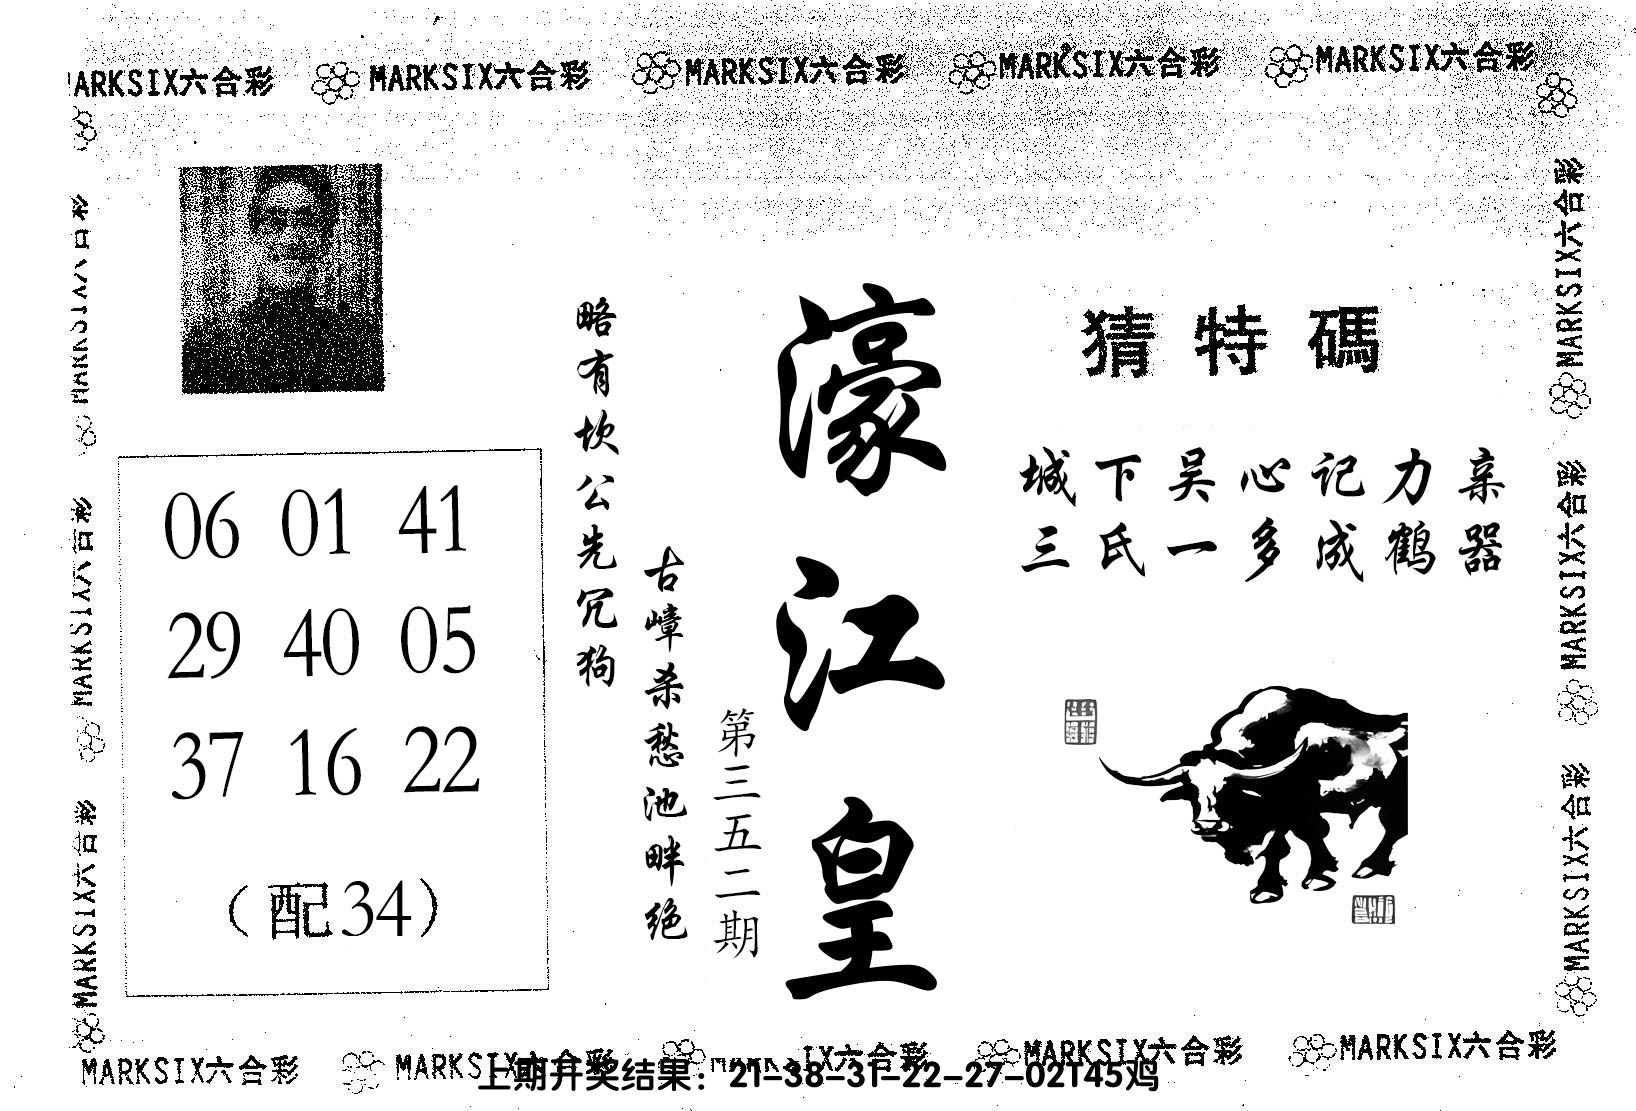 MARKSIX六合彩 MARKSIX六合彩 MARKSIX六合彩 MARKSIX六合彩 MARKSIX六合彩
猜特碼
城下吴心记力亲
三氏一多成鹤器
濠江皇
第三五二期
古嶂杀愁池畔绝
略有坎公先冗狗
06 01 41
29 40 05
37 16 22
(配34)
MARKSIX六合彩
MARKSIX六合彩
MARKSIX六合彩
MARKSIX六合彩
MARKSIX六合彩
MARKSIX六合彩
MARKSIX六合彩 MARKSIX六合彩 MARKSIX六合彩 MARKSIX六合彩
上期开奖结果：21-38-31-22-27-02T45鸡